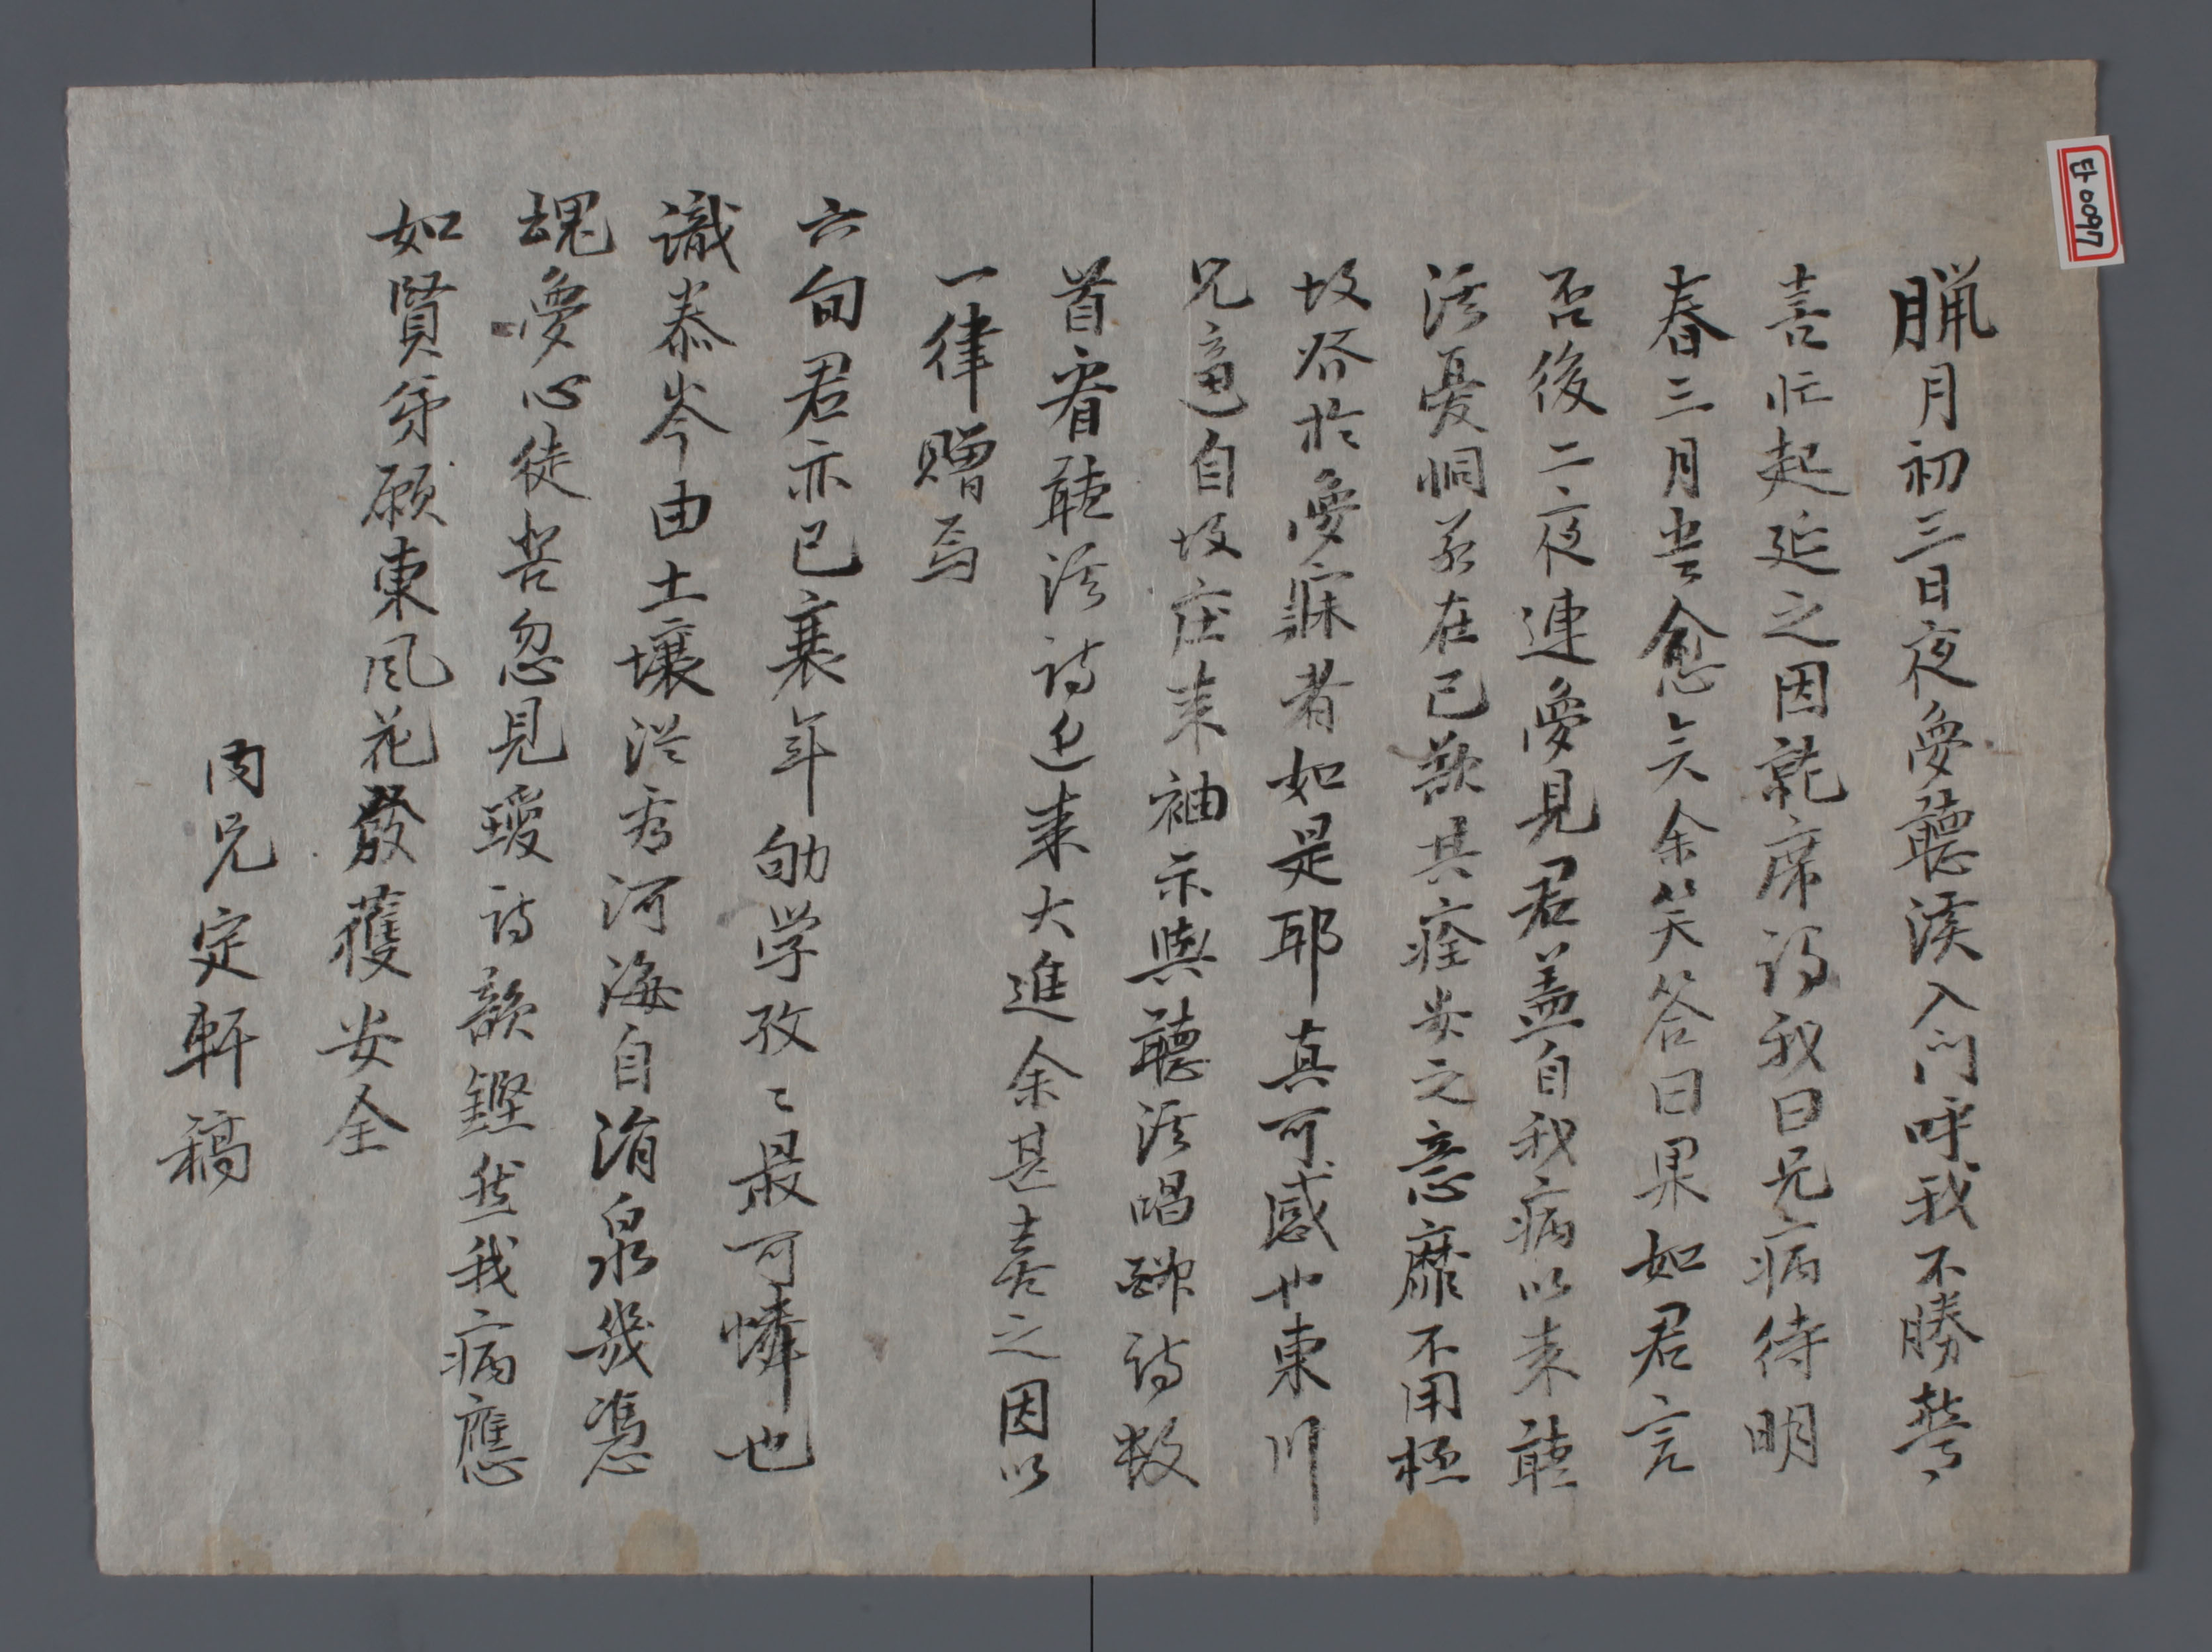 타0097
臘月初三日夜夢聽溪入門呼我不勝驚
喜忙起延之因就席謂我曰兄病待明
春三月當愈矣余笑答曰果如君言
否後二夜連夢見君盖自我病以来聽
溪憂恫若在已欲其痊安之意靡不用極
故發於夢寐者如是耶真可感也東川
兄適自故庄来袖示與聽溪唱酬詩数
首看聽溪詩近来大進余甚喜之因以
一律贈焉
六旬君亦已衰年劬学孜〻最可憐也
識泰岑由土壤從看河海自涓泉幾憑
魂夢心徒苦忽見瓊詩韻鏗然我病應
如賢弟願東風花發獲安全
内兄定軒稿